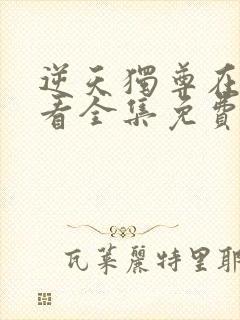 逆天獨尊在
看全集免費
瓦萊麗特里耶